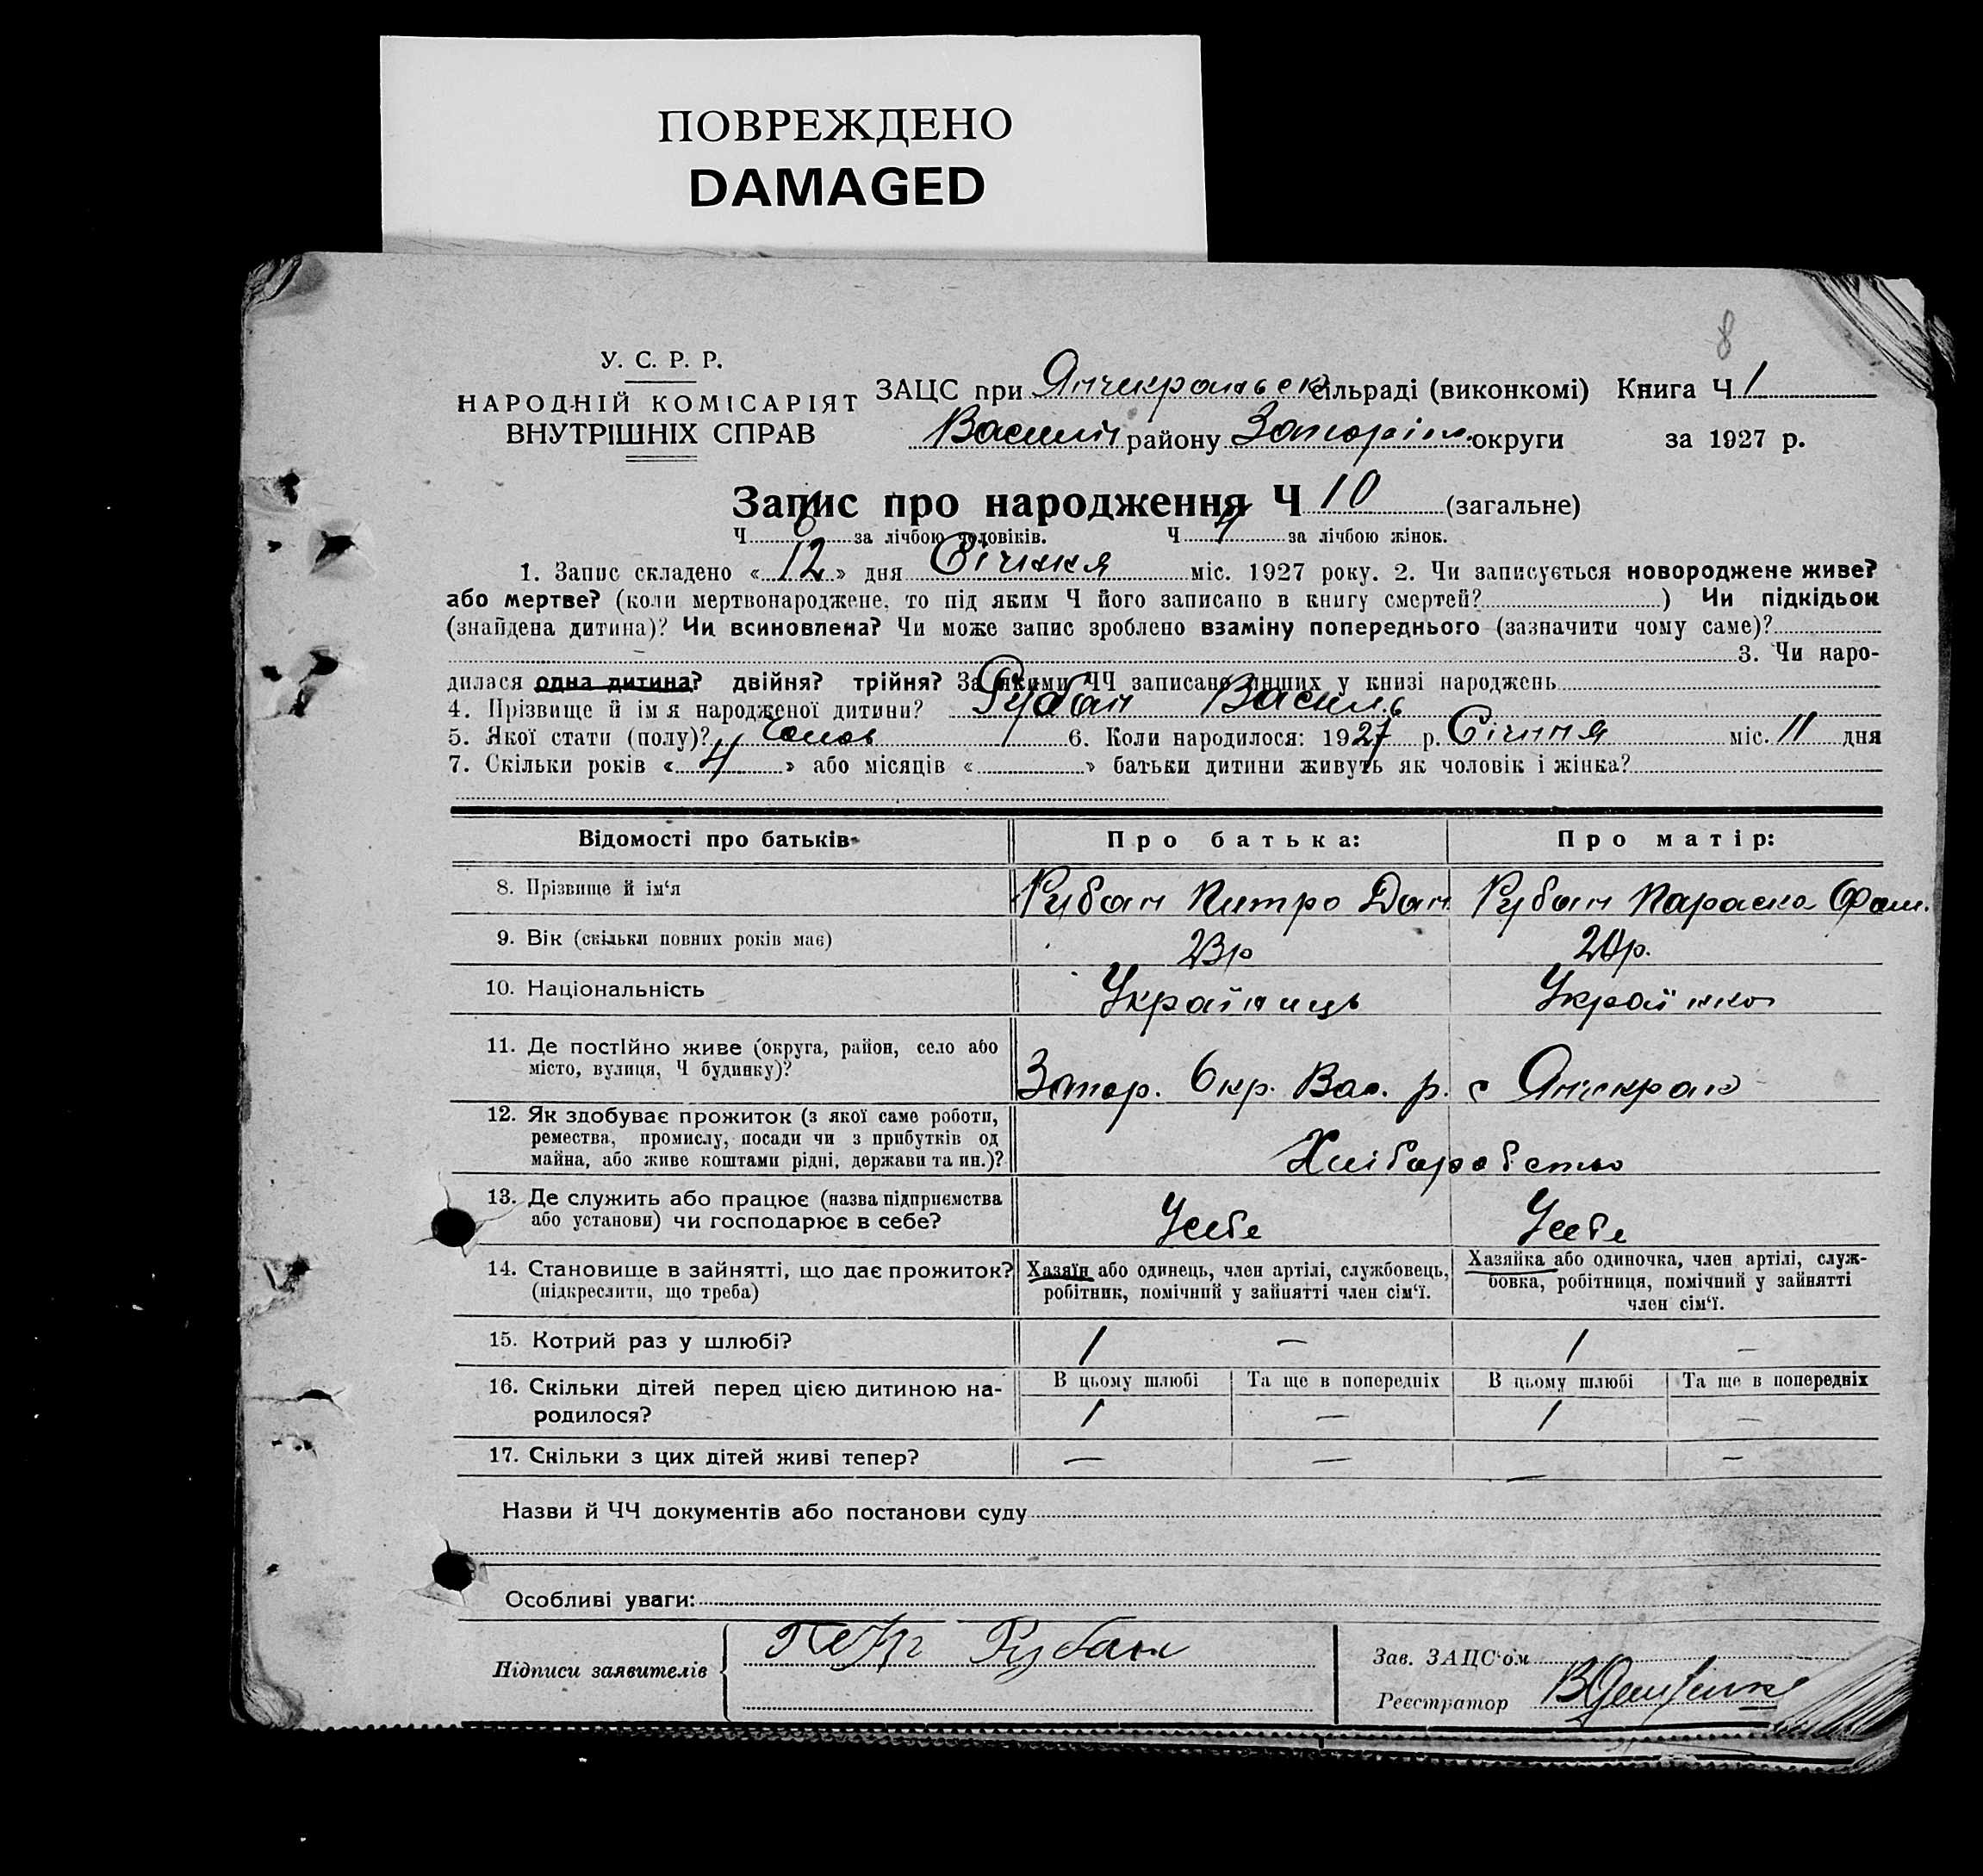 ПОВРЕЖДЕНО
DAMAGED
8
У. С. Р. Р.
НАРОДНІЙ КОМІСАРІЯТ
ВНУТРІШНІХ СПРАВ
ЗАЦС при Янчекракськ сільраді (виконкомі) Книга Ч 1
Василів району Запоріж. округи за 1927 р.
Запис про народження Ч 10 (загальне)
Ч 6 за лічбою чоловіків. Ч 4 за лічбою жінок.
1. Запис складено «12» дня Січння міс. 1927 року. 2. Чи записується новороджене живе?
або мертве? (коли мертвонароджене, то під яким Ч його записано в книгу смертей? ) Чи підкідьок
(знайдена дитина)? Чи всиновлена? Чи може запис зроблено взаміну попереднього (зазначити чому саме)?
3. Чи наро-
дилася одна дитина? двійня? трійня? За якими ЧЧ записано инших у книзі народжень
4. Прізвище й імя народженої дитини? Рубан Василь
5. Якої стати (полу)? Чолов 6. Коли народилося: 1927 р. Січння міс. 11 дня
7. Скільки років «4» або місяців « » батьки дитини живуть як чоловік і жінка?
Відомості про батьків Про батька: Про матір:
8. Прізвище й ім‘я Рубан Питро Дан Рубан Параска Фом.
9. Вік (скільки повних років має) 23р 20р.
10. Національність Україниць Українка
11. Де постійно живе (округа, район, село або
місто, вулиця, Ч будинку)? Запор. Окр. Вас. р. с Янчекрак
12. Як здобуває прожиток (з якої саме роботи,
ремества, промислу, посади чи з прибутків од
майна, або живе коштами рідні, держави та ин.)? Хліборобство
13. Де служить або працює (назва підприємства
або установи) чи господарює в себе? Усебе Усебе
14. Становище в зайнятті, що дає прожиток?
(підкреслити, що треба)
Хазяїн або одинець, член артілі, службовець,
робітник, помічний у зайнятті член сім‘ї.
Хазяйка або одиночка, член артілі, служ-
бовка, робітниця, помічний у зайнятті
член сім‘ї.
15. Котрий раз у шлюбі? 1 — 1 —
16. Скільки дітей перед цією дитиною на-
родилося?
В цьому шлюбі Та ще в попередніх В цьому шлюбі Та ще в попередніх
1 — 1 —
17. Скільки з цих дітей живі тепер? — — — —
Назви й ЧЧ документів або постанови суду
Особливі уваги:
Підписи заявителів Петр Рубан
Зав. ЗАЦС‘ом
Реєстратор